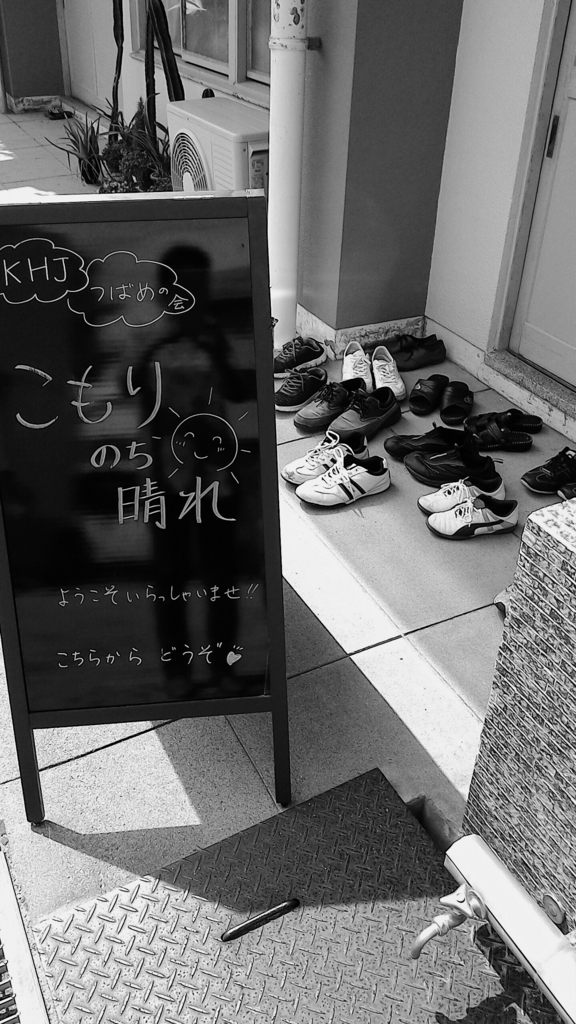 KHJ
つばめの会
こもり
のち
晴れ
ようこそいらっしゃいませ!!
こちらから どうぞ